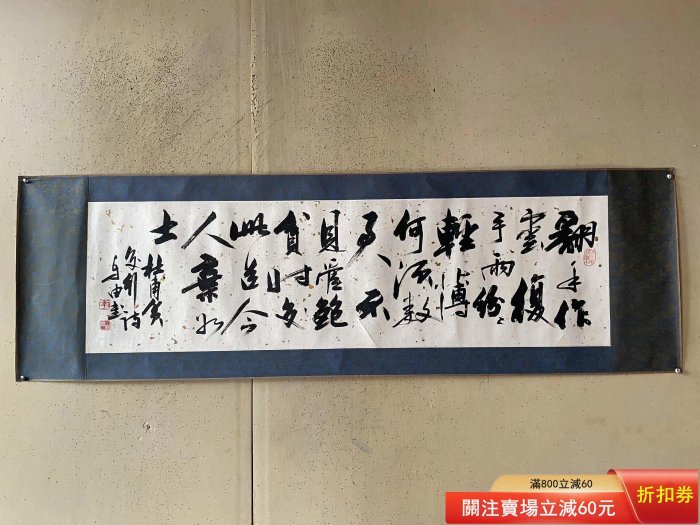 翻手作
雲復
手雨紛〻
輕薄
何須數
君不
見管鮑
貧時交
此道今
人棄如
土
杜甫貧
交行詩
由書
滿800立減60
關注賣場立減60元
折扣券